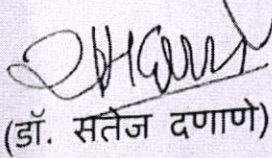 (डॉ. सतेज दणाणे)